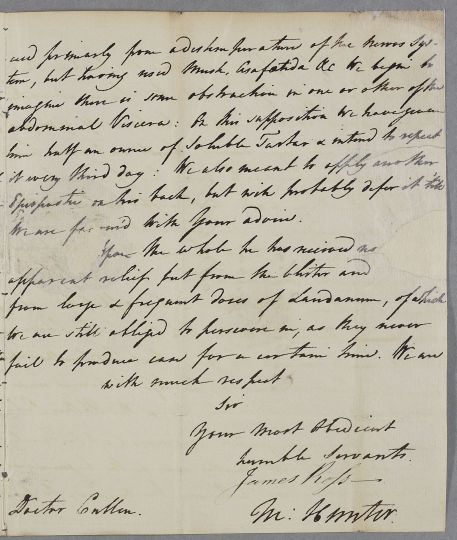 ced primarly from a distemperature of the nervous Sys-
tem, but having used Musk, Asafœtida &c We begin to
imagine there is some obstruction in one or other of the
abdominal Viscera: On this supposition We have given
him half an ounce of Soluble Tartar & intend to repeat
it every third day: We also meant to apply another
Epispastic on his back, but will probably defer it till
We are favored with Your advice.
Upon the whole he has received no
apparent relief but from the blister and
from large & frequent doses of Laudanum, of which
we are still obliged to persevere in, as they never
fail to produce ease for a certain time. We are
with much respect
Sir
Your Most Obedient
humble Servants.
James Ross
M: Hunter.
Doctor Cullen.